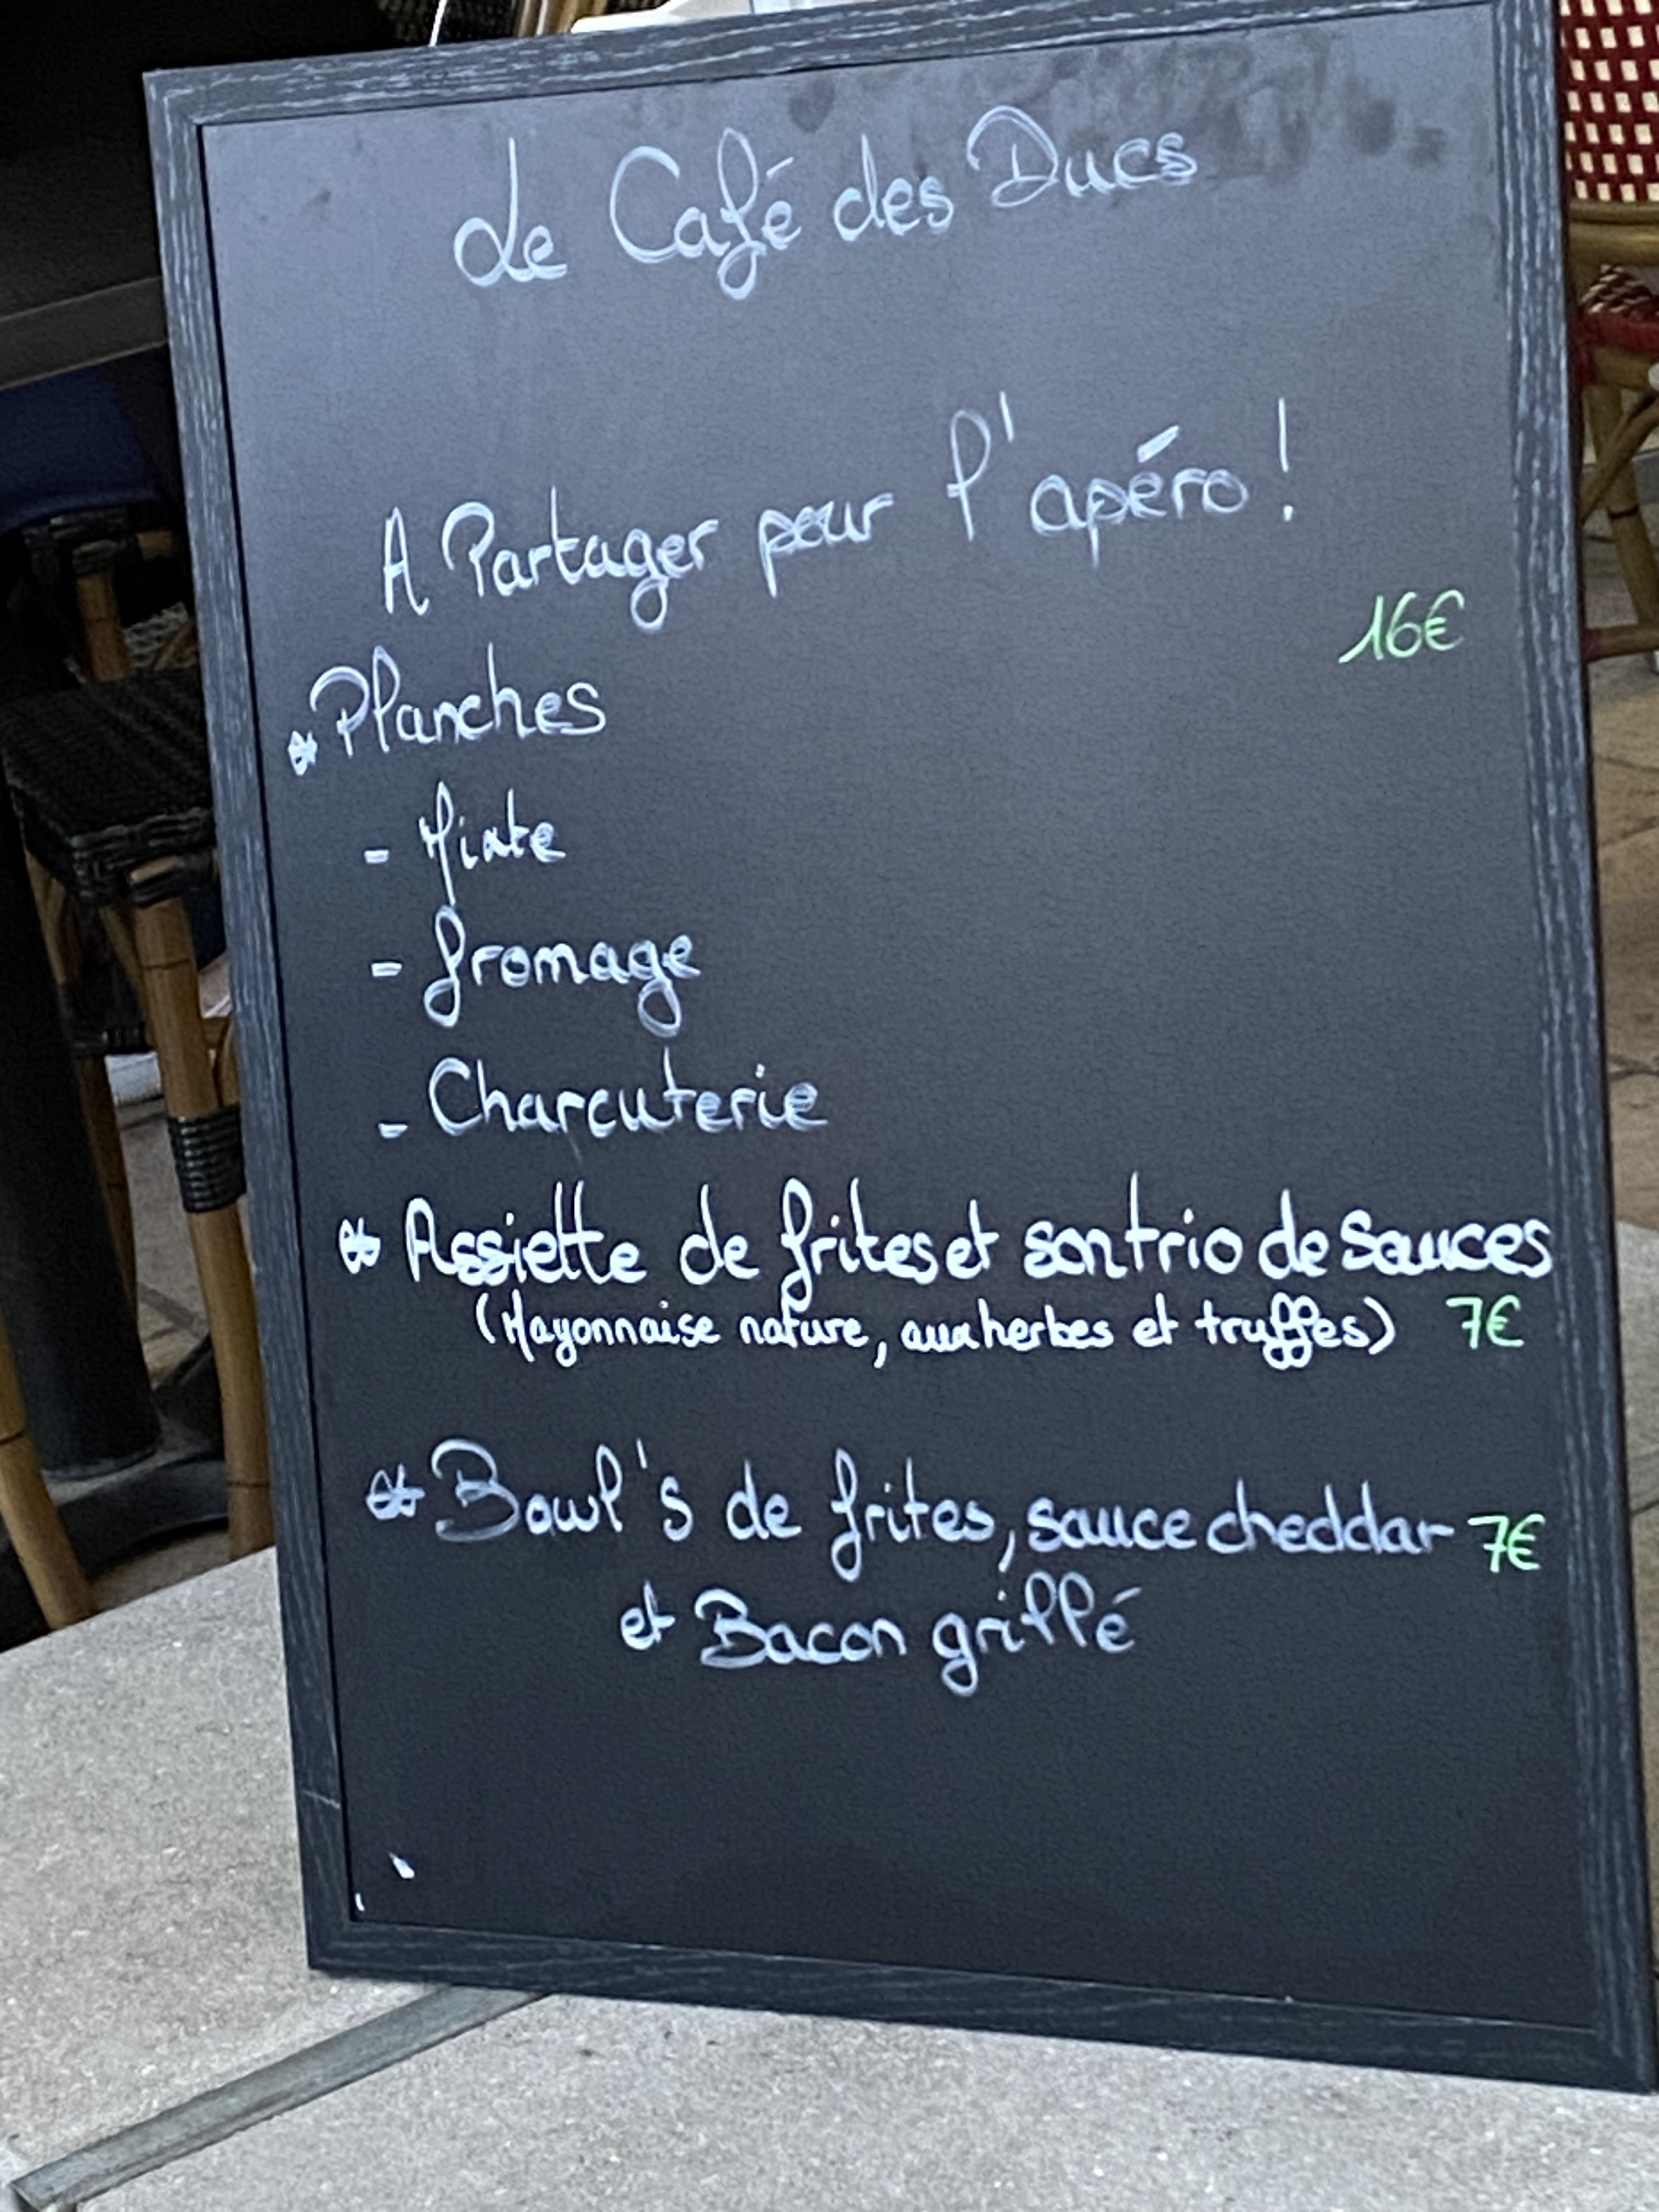 Le Café des Ducs
A Partager pour l'apéro !
16€
* Planches
- Mixte
- fromage
- Charcuterie
* Assiette de frites et son trio de sauces
(Mayonnaise nature, aux herbes et truffes) 7€
* Bowl's de frites, sauce cheddar 7€
et Bacon grillé